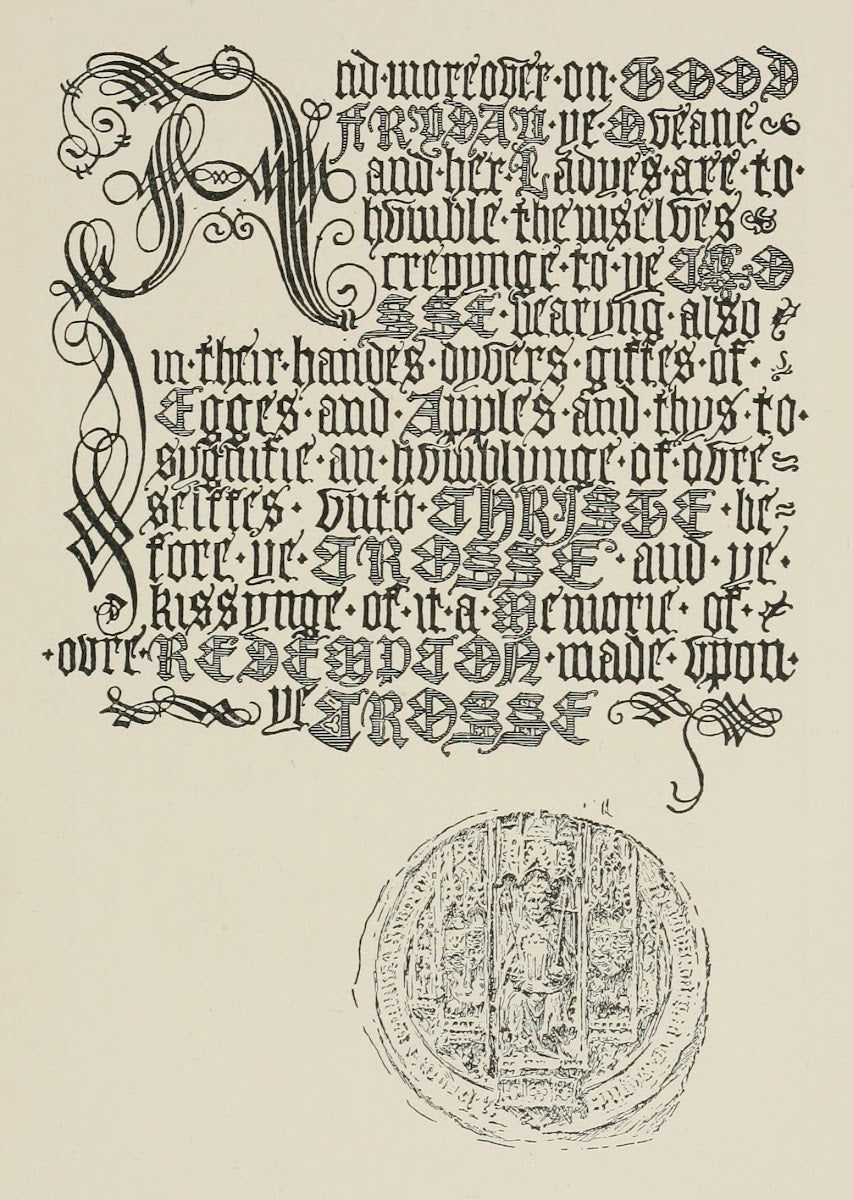 And·moreover·on·GOOD
FRYDAY·ye·Qveane
and·her·Ladyes·are·to·
hvmble·themselves
crepynge·to·ye CRO
SSE·bearyng·also
in·their·handes·dyvers·giftes·of·
Egges·and·Apples·and·thys·to·
sygnifie·an·hvmblynge·of·ovre
selffes·vnto·CHRYSTE·be
fore·ye·CROSSE·and·ye·
kissynge·of·it·a·Memorie·of·
·ovre·REDEMPTON·made·vpon·
ye CROSSE